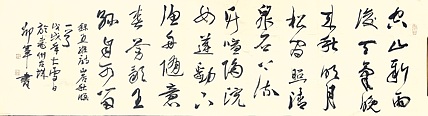 空山新雨
後天氣晚
來秋明月
松間照清
泉石上流
竹喧歸浣
女蓮動下
漁舟隨意
春芳歇王
孫自可留
王維詩山居秋暝
一首
戊戌年大雪日